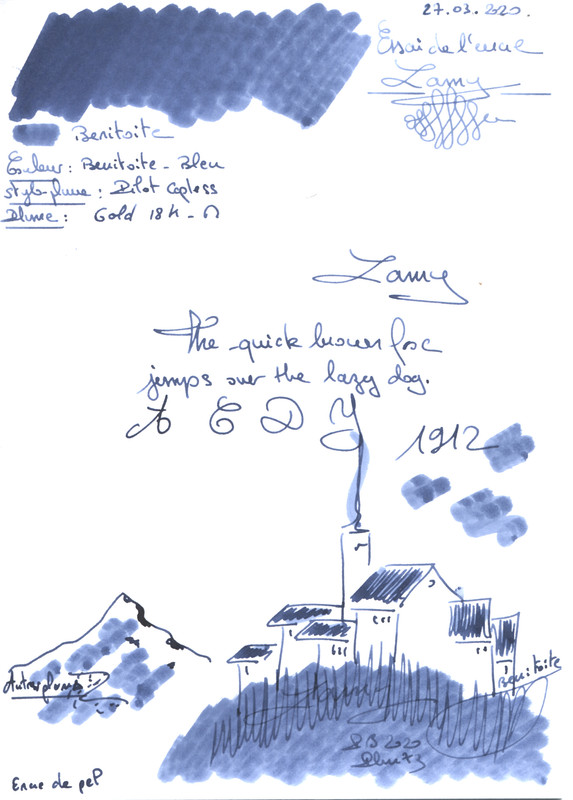 27.03.2020.
Essai de l'encre
Lamy
Benitoite
Couleur : Benitoite - Bleu
stylo-plume : Pilot Capless
Plume : Gold 18 k -
Lamy
The quick brown fox
jumps over the lazy dog.
A E D Y
1912
Benitoite
2020
Encre de